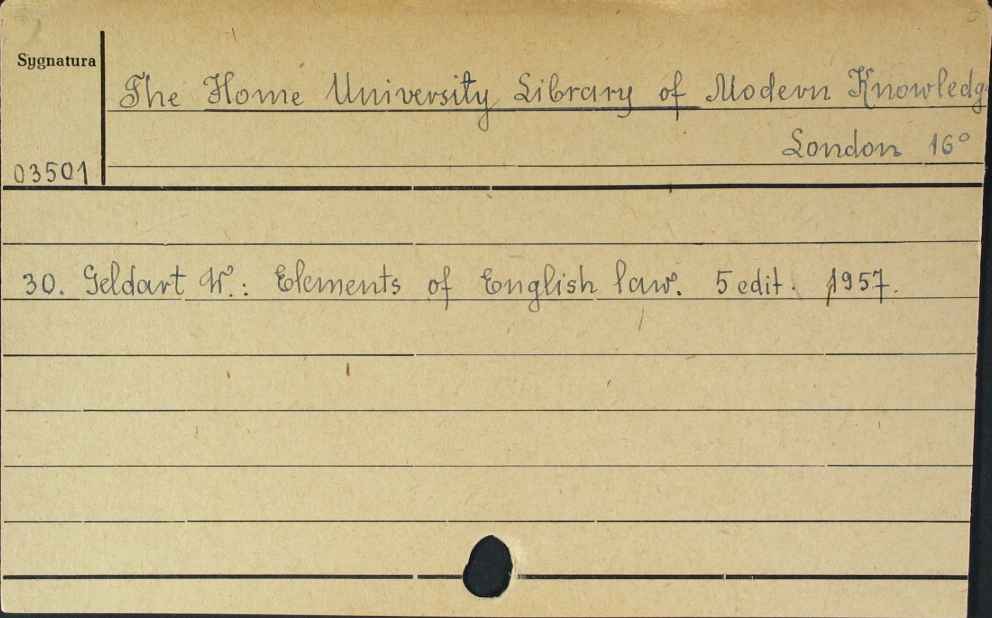 Sygnatura
The Home University Library of Modern Knowledg
London 16°
03501
30. Geldart W.: Elements of English law. 5 edit. 1957.